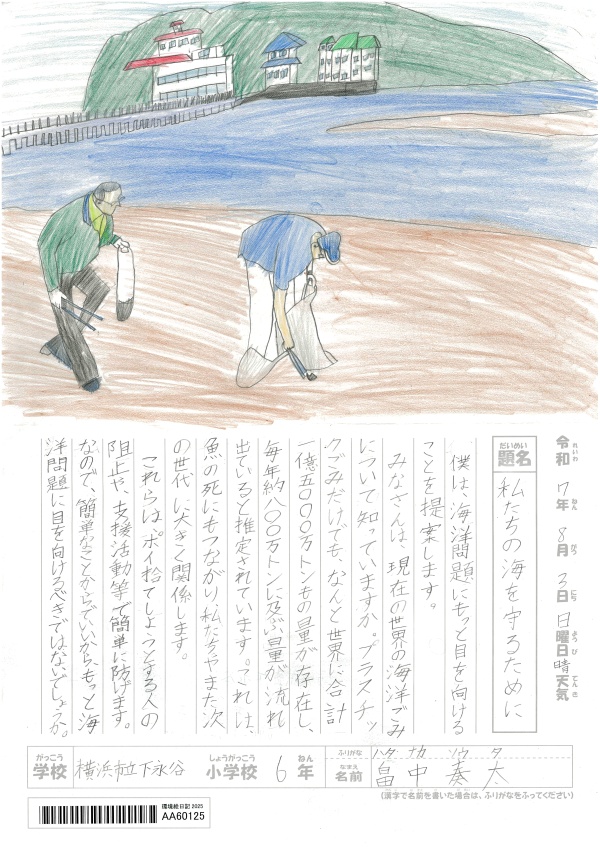 令和7年8月3日日曜日晴天気
れいわ ねん がつ にち ようび てんき
だいめい
題名 私たちの海を守るために
僕は、海洋問題にもっと目を向ける
ことを提案します。
みなさんは、現在の世界の海洋ごみ
について知っていますか。プラスチッ
クごみだけでも、なんと世界に合計
一億五〇〇〇万トンもの量が存在し、
毎年約八〇〇万トンに及ぶ量が流れ
出ていると推定されています。これは、
魚の死にもつながり、私たちやまた次
の世代に大きく関係します。
これらはポイ捨てしようとする人の
阻止や、支援活動等で簡単に防げます。
なので、簡単なことからでいいから、もっと海
洋問題に目を向けるべきではないでしょうか。
がっこう しょうがっこう ねん
学校 横浜市立下永谷 小学校 6年
ふりがな ハタ ナカ ソウ タ
なまえ
名前 畠中奏太
(漢字で名前を書いた場合は、ふりがなをふってください)
環境絵日記 2025
AA60125